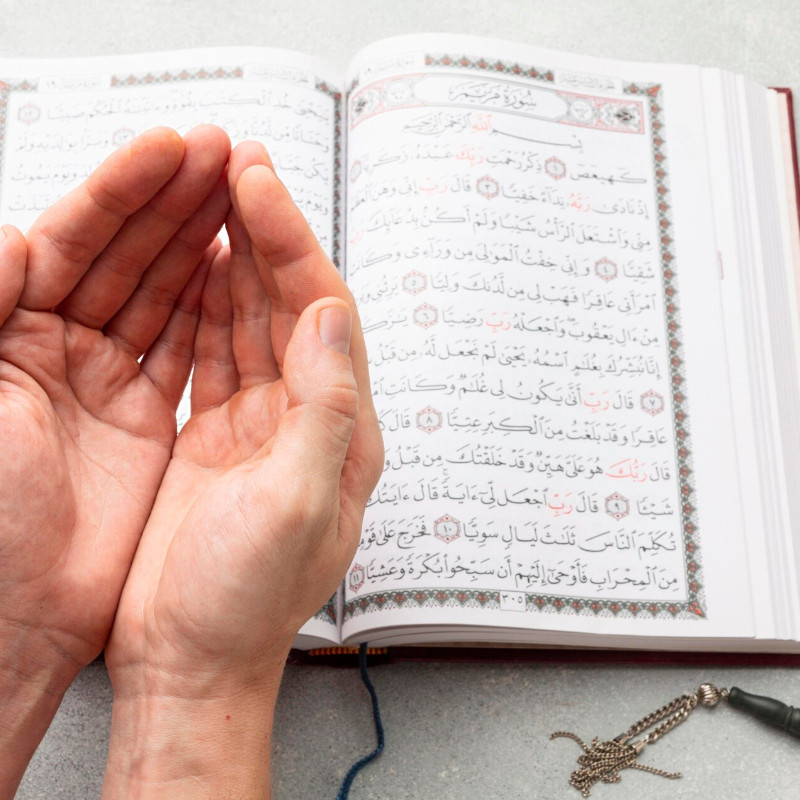 يَٰيَحْيَىٰ خُذِ ٱلْكِتَٰبَ بِقُوَّةٍ وَءَاتَيْنَٰهُ ٱلْحُكْمَ صَبِيًّا
وَحَنَانًا مِّن لَّدُنَّا وَبَرًّۢا بِوَٰلِدَيْهِ وَلَمْ
يَكُن وَيَوْمَ يَمُوتُ
وَيَوْمَ
سُورَةُ مَرْيَمَ
بِسْمِ ٱللَّهِ ٱلرَّحْمَٰنِ ٱلرَّحِيمِ
كٓهيعٓصٓ ١ ذِكْرُ رَحْمَتِ رَبِّكَ عَبْدَهُۥ زَكَرِيَّآ
إِذْ نَادَىٰ رَبَّهُۥ نِدَآءً خَفِيًّا ٣ قَالَ رَبِّ إِنِّى وَهَنَ ٱلْعَظْمُ
مِنِّى وَٱشْتَعَلَ ٱلرَّأْسُ شَيْبًا وَلَمْ أَكُنۢ بِدُعَآئِكَ
شَقِيًّا ٤ وَإِنِّى خِفْتُ ٱلْمَوَٰلِىَ مِن وَرَآءِى وَكَانَتِ
ٱمْرَأَتِى عَاقِرًا فَهَبْ لِى مِن لَّدُنكَ وَلِيًّا ٥ يَرِثُنِى
مِنْ ءَالِ يَعْقُوبَ وَٱجْعَلْهُ رَبِّ رَضِيًّا ٦
إِنَّا نُبَشِّرُكَ بِغُلَٰمٍ ٱسْمُهُۥ يَحْيَىٰ لَمْ نَجْعَل لَّهُۥ مِن قَبْلُ
٧ قَالَ رَبِّ أَنَّىٰ يَكُونُ لِى غُلَٰمٌ وَكَانَتِ
عَاقِرًا وَقَدْ بَلَغْتُ مِنَ ٱلْكِبَرِ عِتِيًّا ٨ قَالَ
قَالَ رَبُّكَ هُوَ عَلَىَّ هَيِّنٌ وَقَدْ خَلَقْتُكَ مِن قَبْلُ
شَيْـًٔا ٩ قَالَ رَبِّ ٱجْعَل لِّىٓ ءَايَةً قَالَ ءَايَتُكَ
تُكَلِّمَ ٱلنَّاسَ ثَلَٰثَ لَيَالٍ سَوِيًّا ١٠ فَخَرَجَ عَلَىٰ
مِنَ ٱلْمِحْرَابِ فَأَوْحَىٰٓ إِلَيْهِمْ أَن سَبِّحُوا۟ بُكْرَةً وَعَشِيًّا ١١
٣٠٥